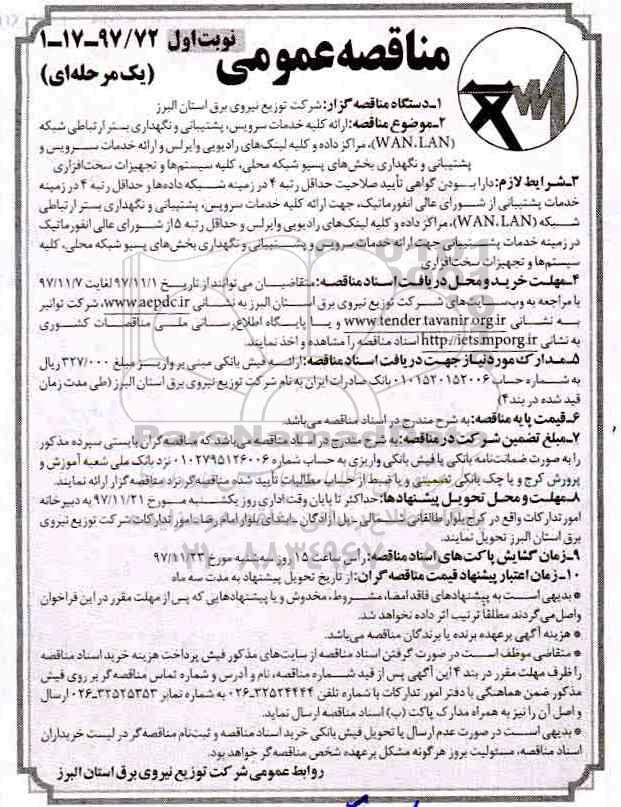 مناقصه عمومی
نوبت اول
۱-۱۷-۹۷/۷۲
(یک مرحله‌ای)
۱ـ دستگاه مناقصه گزار: شرکت توزیع نیروی برق استان البرز
۲ـ موضوع مناقصه: ارائه کلیه خدمات سرویس، پشتیبانی و نگهداری بستر ارتباطی شبکه
(WAN،LAN)، مراکز داده و کلیه لینک‌های رادیویی وایرلس و ارائه خدمات سرویس و
پشتیبانی و نگهداری بخش‌های پسیو شبکه محلی، کلیه سیستم‌ها و تجهیزات سخت‌افزاری
۳ـ شرایط لازم: دارا بودن گواهی تأیید صلاحیت حداقل رتبه ۴ در زمینه شبکه داده‌ها و حداقل رتبه ۴ در زمینه
خدمات پشتیبانی از شورای عالی انفورماتیک، جهت ارائه کلیه خدمات سرویس، پشتیبانی و نگهداری بستر ارتباطی
شبکه (WAN،LAN)، مراکز داده و کلیه لینک‌های رادیویی وایرلس و حداقل رتبه ۵ از شورای عالی انفورماتیک
در زمینه خدمات پشتیبانی جهت ارائه خدمات سرویس و پشتیبانی و نگهداری بخش‌های پسیو شبکه محلی، کلیه
سیستم‌ها و تجهیزات سخت‌افزاری
۴ـ مهلت خرید و محل دریافت اسناد مناقصه: متقاضیان می توانند از تاریخ ۹۷/۱۱/۱ لغایت ۹۷/۱۱/۷
با مراجعه به وب‌سایت‌های شرکت توزیع نیروی برق استان البرز به نشانی www.aepdc.ir، شرکت توانیر
به نشانی www.tender.tavanir.org.ir و یا پایگاه اطلاع‌رسانی ملی مناقصات کشوری
به نشانی http://iets.mporg.ir اسناد مناقصه را مشاهده و اخذ نمایند.
۵ـ مدارک مورد نیاز جهت دریافت اسناد مناقصه: ارائه فیش بانکی مبنی بر واریز مبلغ ۳۲۷/۰۰۰ ریال
به شماره حساب ۰۱۰۱۵۲۰۱۵۲۰۰۶ بانک صادرات ایران به نام شرکت توزیع نیروی برق استان البرز (طی مدت زمان
قید شده در بند ۴)
۶ـ قیمت پایه مناقصه: به شرح مندرج در اسناد مناقصه می‌باشد.
۷ـ مبلغ تضمین شرکت در مناقصه: به شرح مندرج در اسناد مناقصه می‌باشد که مناقصه‌گران بایستی سپرده مذکور
را به صورت ضمانت‌نامه بانکی یا فیش بانکی واریزی به حساب شماره ۰۱۰۲۷۹۵۱۲۶۰۰۶ نزد بانک ملی شعبه آموزش و
پرورش کرج و یا چک بانکی تضمینی و یا ضبط از حساب مطالبات تأیید شده مناقصه‌گر نزد مناقصه‌گزار ارائه نمایند.
۸ـ مهلت و محل تحویل پیشنهادها: حداکثر تا پایان وقت اداری روز یکشنبه مورخ ۹۷/۱۱/۲۱ به دبیرخانه
امور تدارکات واقع در کرج بلوار طالقانی شمالی - پل آزادگان - ابتدای بلوار امام رضا - امور تدارکات شرکت توزیع نیروی
برق استان البرز تحویل نمایند.
۹ـ زمان گشایش پاکت‌های اسناد مناقصه: راس ساعت ۱۵ روز سه‌شنبه مورخ ۹۷/۱۱/۲۳
۱۰ـ زمان اعتبار پیشنهاد قیمت مناقصه گران: از تاریخ تحویل پیشنهاد به مدت سه ماه
* بدیهی است به پیشنهادهای فاقد امضا، مشروط، مخدوش و یا پیشنهادهایی که پس از مهلت مقرر در این فراخوان
واصل می‌گردند مطلقاً ترتیب اثر داده نخواهد شد.
* هزینه آگهی برعهده برنده یا برندگان مناقصه می‌باشد.
* متقاضی موظف است در صورت گرفتن اسناد مناقصه از سایت‌های مذکور فیش پرداخت هزینه خرید اسناد مناقصه
را ظرف مهلت مقرر در بند ۴ این آگهی پس از قید شماره مناقصه، نام و آدرس و شماره تماس مناقصه گر بر روی فیش
مذکور ضمن هماهنگی با دفتر امور تدارکات با شماره تلفن ۳۲۵۲۴۴۴۴-۰۲۶ به شماره نمابر ۳۲۵۲۵۳۵۳-۰۲۶ ارسال
و اصل آن را نیز به همراه مدارک پاکت (ب) اسناد مناقصه ارسال نماید.
* بدیهی است در صورت عدم ارسال یا تحویل فیش بانکی خرید اسناد مناقصه و ثبت‌نام مناقصه‌گر در لیست خریداران
اسناد مناقصه، مسئولیت بروز هرگونه مشکل برعهده شخص مناقصه‌گر خواهد بود.
روابط عمومی شرکت توزیع نیروی برق استان البرز